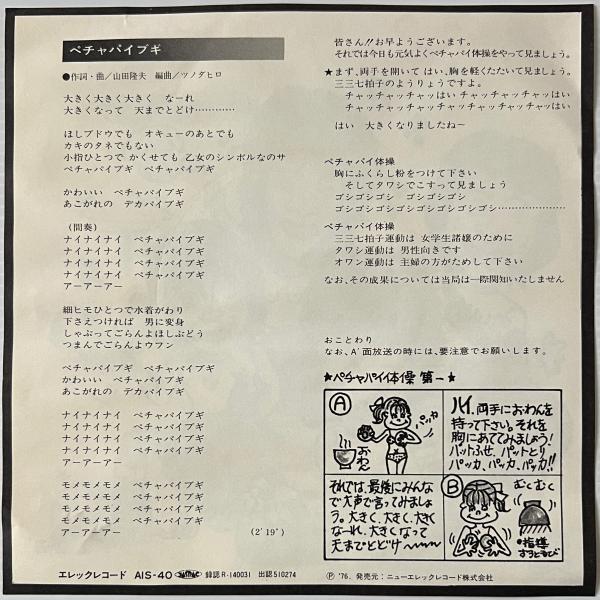 ペチャパイブギ
●作詞・曲／山田隆夫 編曲／ツノダヒロ
大きく大きく大きく なーれ
大きくなって 天までとどけ…………
ほしブドウでも オキューのあとでも
カキのタネでもない
小指ひとつで かくせても 乙女のシンボルなのサ
ペチャパイブギ ペチャパイブギ
かわいい ペチャパイブギ
あこがれの デカパイブギ
(間奏)
ナイナイナイ ペチャパイブギ
ナイナイナイ ペチャパイブギ
ナイナイナイ ペチャパイブギ
ナイナイナイ ペチャパイブギ
アーアーアー
細ヒモひとつで水着がわり
下さえつければ 男に変身
しゃぶってごらんよほしぶどう
つまんでごらんよウフン
ペチャパイブギ ペチャパイブギ
かわいい ペチャパイブギ
あこがれの デカパイブギ
ナイナイナイ ペチャパイブギ
ナイナイナイ ペチャパイブギ
ナイナイナイ ペチャパイブギ
ナイナイナイ ペチャパイブギ
アーアーアー
モメモメモメ ペチャパイブギ
モメモメモメ ペチャパイブギ
モメモメモメ ペチャパイブギ
モメモメモメ ペチャパイブギ
アーアーアー (2'19")
皆さん!!お早ようございます。
それでは今日も元気よくペチャパイ体操をやって見ましょう。
★まず、両手を開いて はい、胸を軽くたたいて見しょう。
三三七拍子のようりょうですよ。
チャッチャッチャッはい チャッチャッチャッはい
チャッチャッチャッチャッチャッチャッチャッはい
はい 大きくなりましたねー
ペチャパイ体操
胸にふくらし粉をつけて下さい
そしてタワシでこすって見ましょう
ゴシゴシゴシ ゴシゴシゴシ
ゴシゴシゴシゴシゴシゴシゴシ…………………
ペチャパイ体操
三三七拍子運動は 女学生諸嬢のために
タワシ運動は 男性向きです
オワン運動は 主婦の方がためして下さい
なお、その成果については当局は一際関知いたしません
おことわり
なお、A'面放送の時には、要注意でお願いします。
★ペチャパイ体操 第一★
A
パッカ
おわん
ハイ、両手におわんを
持って下さい。それを
胸にあててみましょう!
パットふせ、パットとり
パッカ、パッカ、パッカ!!
それでは、最後にみんな
で大声で言ってみましょ
う。大きく、大きく、大きく
なーれ、大きくなって
天までとどけ〜〜〜
B
むくむく
●指導
エレックレコード AIS-40 録認R-140031 出認510274
Ⓟ '76. 発売元：ニューエレックレコード株式会社